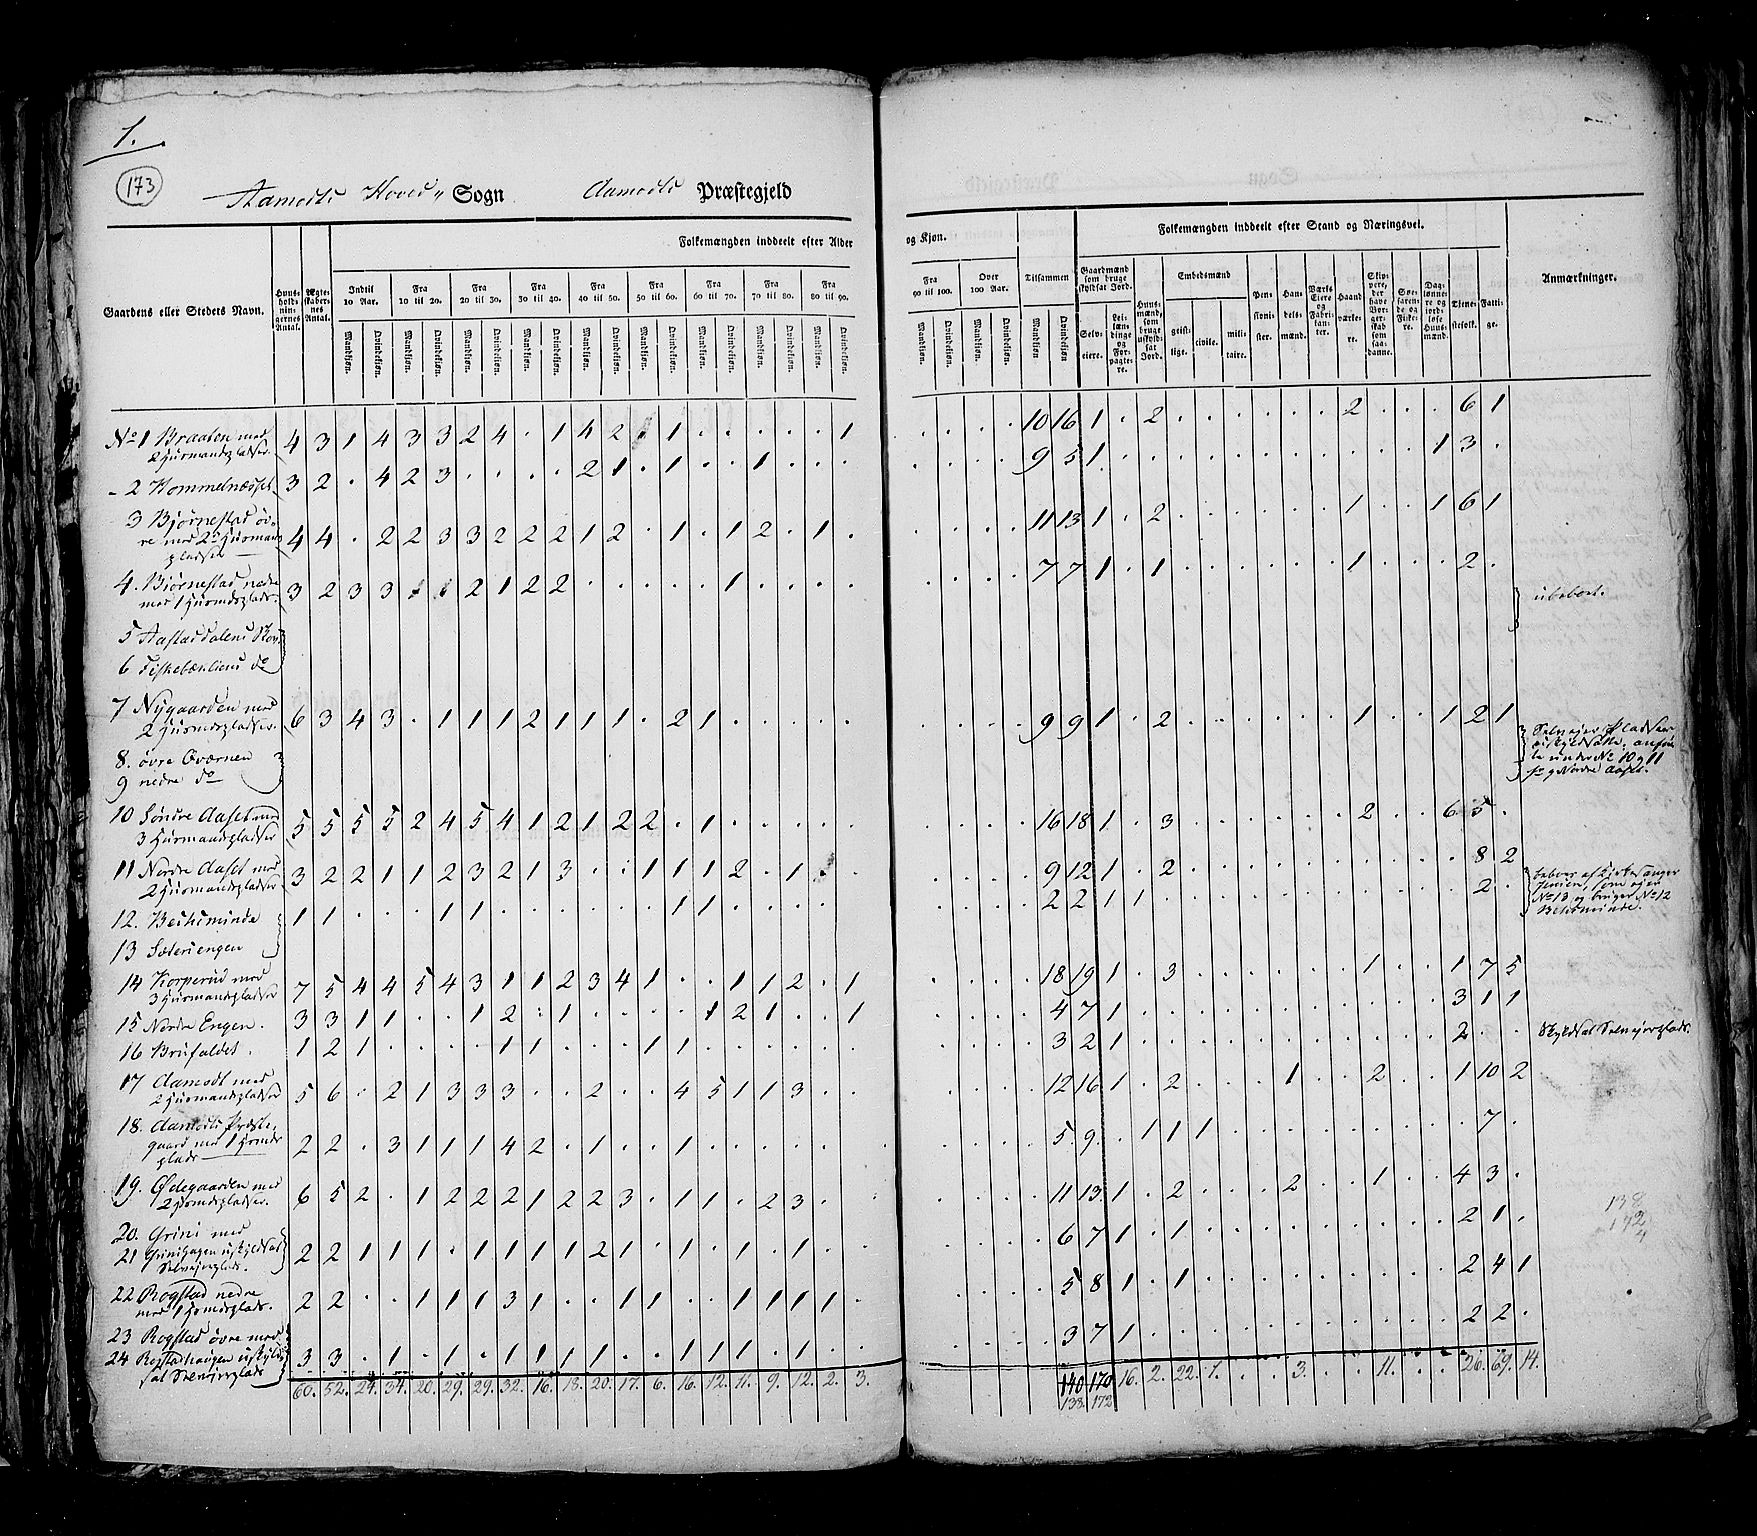 1.
173
Aamodts Hoved„ Sogn Aamodts Præstegjeld
Gaardens eller Stedets Navn.
Huus-holdningernes Antal.
Ægteskabernes Antal.
Folkemængden inddeelt efter Alder
og Kjøn.
Indtil 10 Aar.
Fra 10 til 20.
Fra 20 til 30.
Fra 30 til 40.
Fra 40 til 50.
Fra 50 til 60.
Fra 60 til 70.
Fra 70 til 80.
Fra 80 til 90.
Fra 90 til 100.
Over 100 Aar.
Mandkiøn. Qvindekiøn.
Tilsammen
Mandkiøn Qvindekiøn
Folkemængden inddeelt efter Stand og Næringsvei.
Gaardmænd som bruge skyldsat Jord.
Selveiere.
Leilændinge og Forpagtere.
Huusmænd, som bruge uskyldsat Jord.
Embedsmænd
geistlige.
civile.
militaire.
Pensionister.
Handelsmænd.
Værks Eiere og Fabrikanter.
Haandværkere.
Skippere, der have Borgerskab som saadanne.
Søefarende og Fiskere.
Daglønnere og jordløse Huusmænd.
Tjenestefolk.
Fattige.
Anmærkninger.
No 1 Braaten med 4 3 1 4 3 3 2 4 . 1 4 2 . 1 . . . . . 1 . . . . 10 16 1 . 2 . . . . . . 2 . . . 6 1
2 Huusmandspladser.
2 Hommelnæsset 3 2 . 4 2 3 . . . . 2 1 . 1 . . 1 . . . . . . . 9 5 1 . . . . . . . . . . . 1 3 .
3 Bjørnestad øv- 4 4 . 2 2 3 3 2 2 2 1 2 . 1 . 1 2 . 1 . . . . 11 13 1 . 2 . . . . . . 1 . . 1 6 1
re med 2 Huusmands
pladser
4. Biørnestad nedre 3 2 3 3 1 1 2 1 2 2 . . . . . 1 . . . . . . . . 7 7 1 . 1 . . . . . . 1 . . . 2 .
med 1 Huusmdsplads.
5 Aastaddalens Skov
6 Fiskebækliens do
ubeboet.
7 Nygaarden med 6 3 4 3 . 1 1 1 2 1 1 1 . 2 1 . . . . . . . . . 9 9 1 . 2 . . . . . . 1 . . 1 2 1
2 Huusmdspladser.
8. øvre Qværnen
9 nedre do
Selveier Pladser
uskyldsatte, anfør-
te under No 10 og 11
10 Søndre Aaset med 5 5 5 5 2 4 5 4 1 2 1 2 2 . 1 . . . . . . . . . 16 18 1 . 3 . . . . . . 2 . . 6 5 .
3 Huusmandspladser
11 Nordre Aaset med 3 2 2 1 1 2 3 2 1 3 . . 1 1 1 2 . 1 . . . . . 9 12 1 . 2 . . . . . . . . . . 8 2
2 Huusmandspladser
12. Beskeminde 1 1 . . . 1 1 . . . . . . 1 1 . . . . . . . . . 2 2 1 1 . . . . . . . . . . . 2 .
13 Sæteriengen
beboes af Kirkesanger
Jensen, som ejer
No 13 og bruger No 12
14 Korperud med 7 5 4 4 5 4 3 1 1 2 3 4 1 . . 1 1 2 . 1 . . . . 18 19 1 . 3 . . . . . . 1 . . 1 7 5
3 Huusmandspladser
15 Nordre Engen. 3 3 1 1 . . 1 2 . 1 . . . . 1 2 1 . . 1 . . . . 4 7 1 . . . . . . . . . . . 3 1 1
16 Brufaldet. 1 2 1 . . . . 1 1 . . . 1 1 . . . . . . . . . . 3 2 1 . . . . . . . . . . . 2 . .
Skyldsat Selvejerplads.
17 Aamodt med 5 6 . 2 1 3 3 3 . . 2 . . 4 5 1 1 3 . . . . . . 12 16 1 . 2 . . . . 1 . . 2 . . 1 10 2
2 Huusmandspladser
18. Aamodts Præste- 2 2 . 3 1 1 1 4 2 . 1 . . 1 . . . . . . . . . . 5 9 . 1 1 1 . . . . . . . . . 7 .
gaard med 1 Husmds
plads
19. Ødegaarden med 6 5 2 . 1 2 2 2 1 2 2 3 . 1 1 . 2 3 . . . . . 11 13 1 . 2 . . . . 2 . . 1 . . 4 3 .
2 Husmdspladser.
20. Grini med
21 Grinihagen uskyldsat 2 2 1 1 1 . 1 1 1 1 2 1 . 1 . 1 . 1 . . . . . . 6 7 1 . 1 . . . . . . . . . 2 1 .
Selvejerplads.
22 Rogstad nedre 2 2 . . 1 1 1 3 1 . . 1 1 . . 1 1 1 1 . . . . . 5 8 1 . 1 . . . . . . . . . 2 4 1
med 1 Husmdsplads.
23 Rogstad øvre med
24 Rogstadhaugen uskyld- 3 3 . 1 . 1 . 1 1 1 1 . . 1 1 1 . 1 . . . . . . 3 7 1 . . . . . . . . . . . 2 2 .
sat Selvejerplads
60. 52. 24. 34. 20. 29. 29. 32. 16. 18. 20. 17. 6. 16. 12. 11. 9. 12. 2. 3. 140 170 16. 2. 22. 1. . . . 3. . . 11. . . 26. 69. 14.
138. 172
138
172